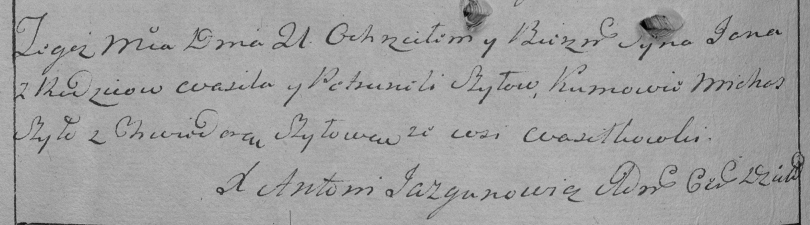 Tegoż Mca Dnia 21. Ochrzciłem y Bierzm Syna Jana
z Rodzicow Wasila y Petruneli Szyłow, Kumowie Michał
Szyło z Chwiedorą Szyłową ze wsi Wasilkowki.
X Antoni Jazgunowicz Adm Cer